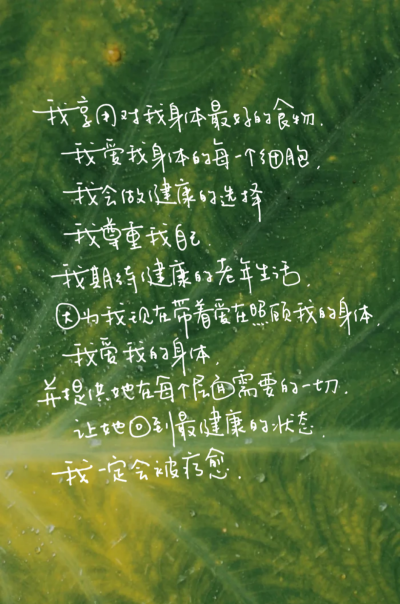 我享用对我身体最好的食物.
我爱我身体的每一个细胞.
我会做健康的选择
我尊重我自己.
我期待健康的老年生活.
因为我现在带着爱在照顾我的身体.
我爱我的身体.
并提供她在每个层面需要的一切.
让她回到最健康的状态.
我一定会被疗愈.